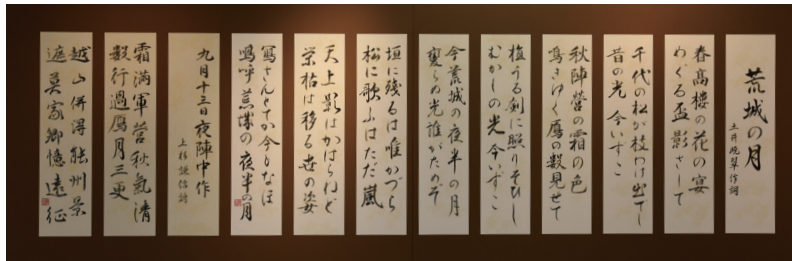 荒城の月
土井晩翠作詞
春高楼の花の宴
めぐる盃影さして
千代の松が枝わけ出でし
昔の光今いずこ
秋陣營の霜の色
鳴きゆく鴈の数見せて
植うる剣に照りそひし
むかしの光今いずこ
今荒城の夜半の月
変らぬ光誰がためぞ
垣に残るは唯かづら
松に歌ふはただ嵐
天上影はかはらねど
栄枯は移る世の姿
寫さんとてか今もなほ
嗚呼荒城の夜半の月
九月十三日夜陣中作
上杉謙信詩
霜満軍營秋氣清
数行過鴈月三更
越山併得能州景
遮莫家郷憶遠征